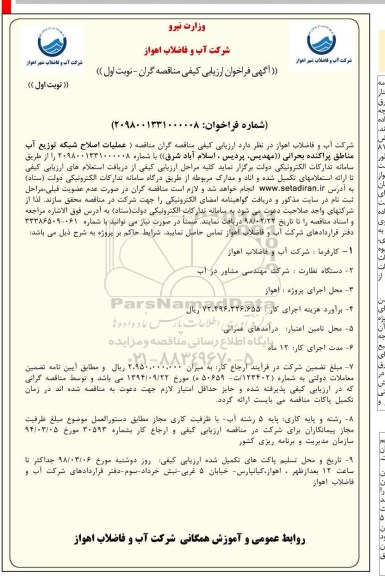 وزارت نیرو
شرکت آب و فاضلاب اهواز
((آگهی فراخوان ارزیابی کیفی مناقصه گران -نوبت اول ))
(( نوبت اول ))
(شماره فراخوان: ۲۰۹۸۰۰۱۳۳۱۰۰۰۰۰۸)
شرکت آب و فاضلاب اهواز در نظر دارد ارزیابی کیفی مناقصه گران مناقصه ( عملیات اصلاح شبکه توزیع آب
مناطق پراکنده بحرانی ((مهدیس، پردیس ، اسلام آباد شرق)) با شماره ۲۰۹۸۰۰۱۳۳۱۰۰۰۰۰۸ را از طریق
سامانه تدارکات الکترونیکی دولت برگزار نماید کلیه مراحل ارزیابی کیفی از دریافت استعلام های ارزیابی کیفی
تا ارائه استعلامهای تکمیل شده و اناد و مدارک مربوطه از طریق درگاه سامانه تدارکات الکترونیکی دولت (ستاد)
به آدرس www.setadiran.ir انجام خواهد شد و لازم است مناقصه گران در صورت عدم عضویت قبلی،مراحل
ثبت نام در سایت مذکور و دریافت گواهینامه امضای الکترونیکی را جهت شرکت در مناقصه محقق سازند. لذا از
شرکتهای واجد صلاحیت دعوت می شود به سامانه تدارکات الکترونیکی دولت(ستاد) به آدرس فوق الاشاره مراجعه
و اسناد مناقصه را تا تاریخ ۹۸/۰۲/۲۴ دریافت نمایند. ضمناً در صورت نیاز می توانید با شماره ۰۶۱-۳۳۳۸۶۵۰۹
دفتر قراردادهای شرکت آب و فاضلاب اهواز تماس حاصل نمایید. شرایط حاکم بر پروژه به شرح ذیل می باشد:
۱- کارفرما : شرکت آب و فاضلاب اهواز
۲- دستگاه نظارت : شرکت مهندسی مشاور در آب
۳- محل اجرای پروژه : اهواز
۴- برآورد هزینه اجرای کار: ۷۲،۴۹۶،۲۳۶،۶۵۵ ریال
۵- محل تامین اعتبار: درآمدهای عمرانی
۶- مدت اجرای کار: ۱۲ ماه
۷- مبلغ تضمین شرکت در فرآیند ارجاع کار: به میزان ۲،۹۵۰،۰۰۰،۰۰۰ ریال و مطابق آیین نامه تضمین
معاملات دولتی به شماره (۱۲۳۴۰۲/ت- ۵۰۶۵۹ ه) مورخ ۱۳۹۴/۰۹/۲۲ می باشد و توسط مناقصه گرانی
که در ارزیابی کیفی پذیرفته شده و حایز حداقل امتیاز لازم جهت دعوت به مناقصه شده اند در زمان
تکمیل پاکات مناقصه می بایست ارائه گردد.
۸- رشته و پایه کاری: پایه ۵ رشته آب- با ظرفیت کاری مجاز مطابق دستورالعمل موضوع مبلغ ظرفیت
مجاز پیمانکاران برای شرکت در مناقصه ارزیابی کیفی و ارجاع کار بشماره ۳۰۵۹۳ مورخ ۹۴/۰۳/۰۵
سازمان مدیریت و برنامه ریزی کشور
۹- تاریخ و محل تسلیم پاکت های تکمیل شده ارزیابی کیفی: روز دوشنبه مورخ ۹۸/۰۳/۰۶ حداکثر تا
ساعت ۱۲ بعدازظهر ، اهواز،کیانپارس- خیابان ۵ غربی-نبش خرداد-سوم-دفتر قراردادهای شرکت آب و
فاضلاب اهواز
روابط عمومی و آموزش همگانی شرکت آب و فاضلاب اهواز